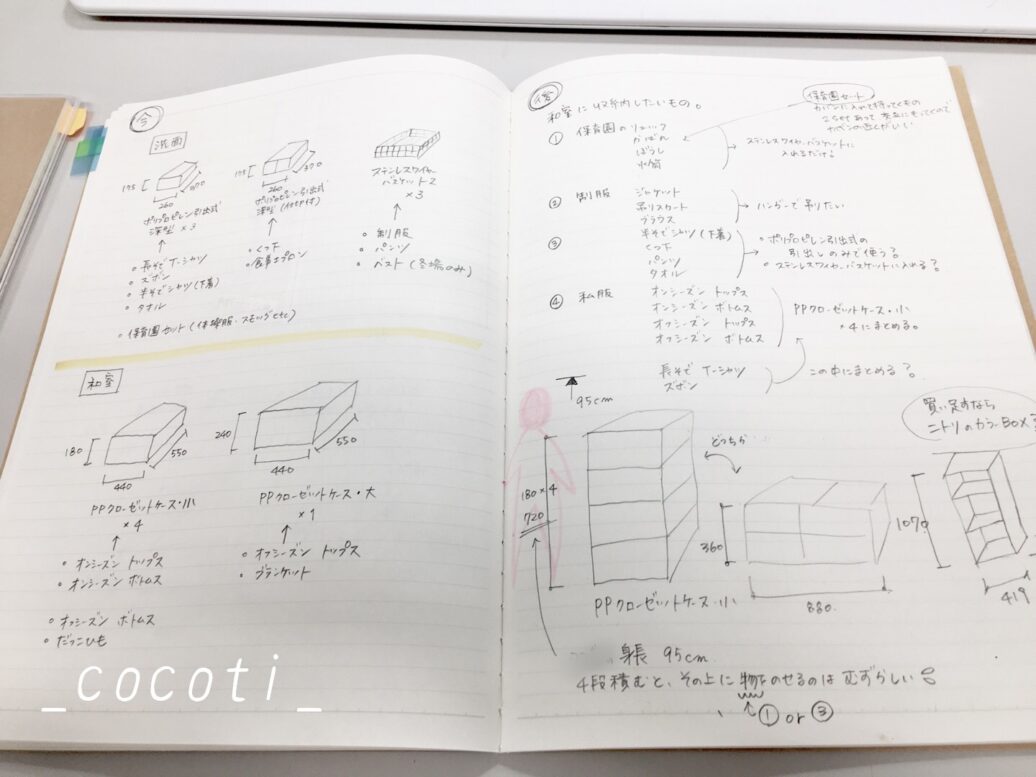 今
洗面
175
260
370
ポリプロピレン引出式
深型 × 3
・長そで T-シャツ
・ズボン
・半そでシャツ(下着)
・タオル
・保育園セット(体操服・スモックetc)
175
260
370
ポリプロピレン引出式
深型(仕切付)
・くつ下
・食事エプロン
ステンレスワイヤー
バスケット2
× 3
・制服
・パンツ
・ベスト(冬場のみ)
和室
180
440
550
PPクローゼットケース・小
× 4
・オンシーズン トップス
・オンシーズン ボトムス
・オフシーズン ボトムス
・だっこひも
240
440
550
PPクローゼットケース・大
× 1
・オフシーズン トップス
・ブランケット
_cocoti_
和室に収納したいもの。
保育園セット
カバンに入れて持ってくもの
① 保育園のリュック
かばん
ぼうし
水筒
ステンレスワイヤーバスケットに
入れるだけ?
② 制服 ジャケット
吊りスカート
ブラウス
ハンガーで吊りたい
③ 半そでシャツ(下着)
くつ下
パンツ
タオル
・ポリプロピレン引出式の
引出しのみで使う?
・ステンレスワイヤーバスケットに入れる?
④ 私服 オンシーズン トップス
オンシーズン ボトムス
オフシーズン トップス
オフシーズン ボトムス
PPクローゼットケース・小
× 4 にまとめる。
長そで T-シャツ
ズボン
この中にまとめる?
95cm
180 × 4
720
PPクローゼットケース・小
どっちか
360
880
買い足すなら
ニトリのカラーBOX
1070
419
身長 95cm
4段積むと、その上に物をのせるのは むずかしい
① or ③